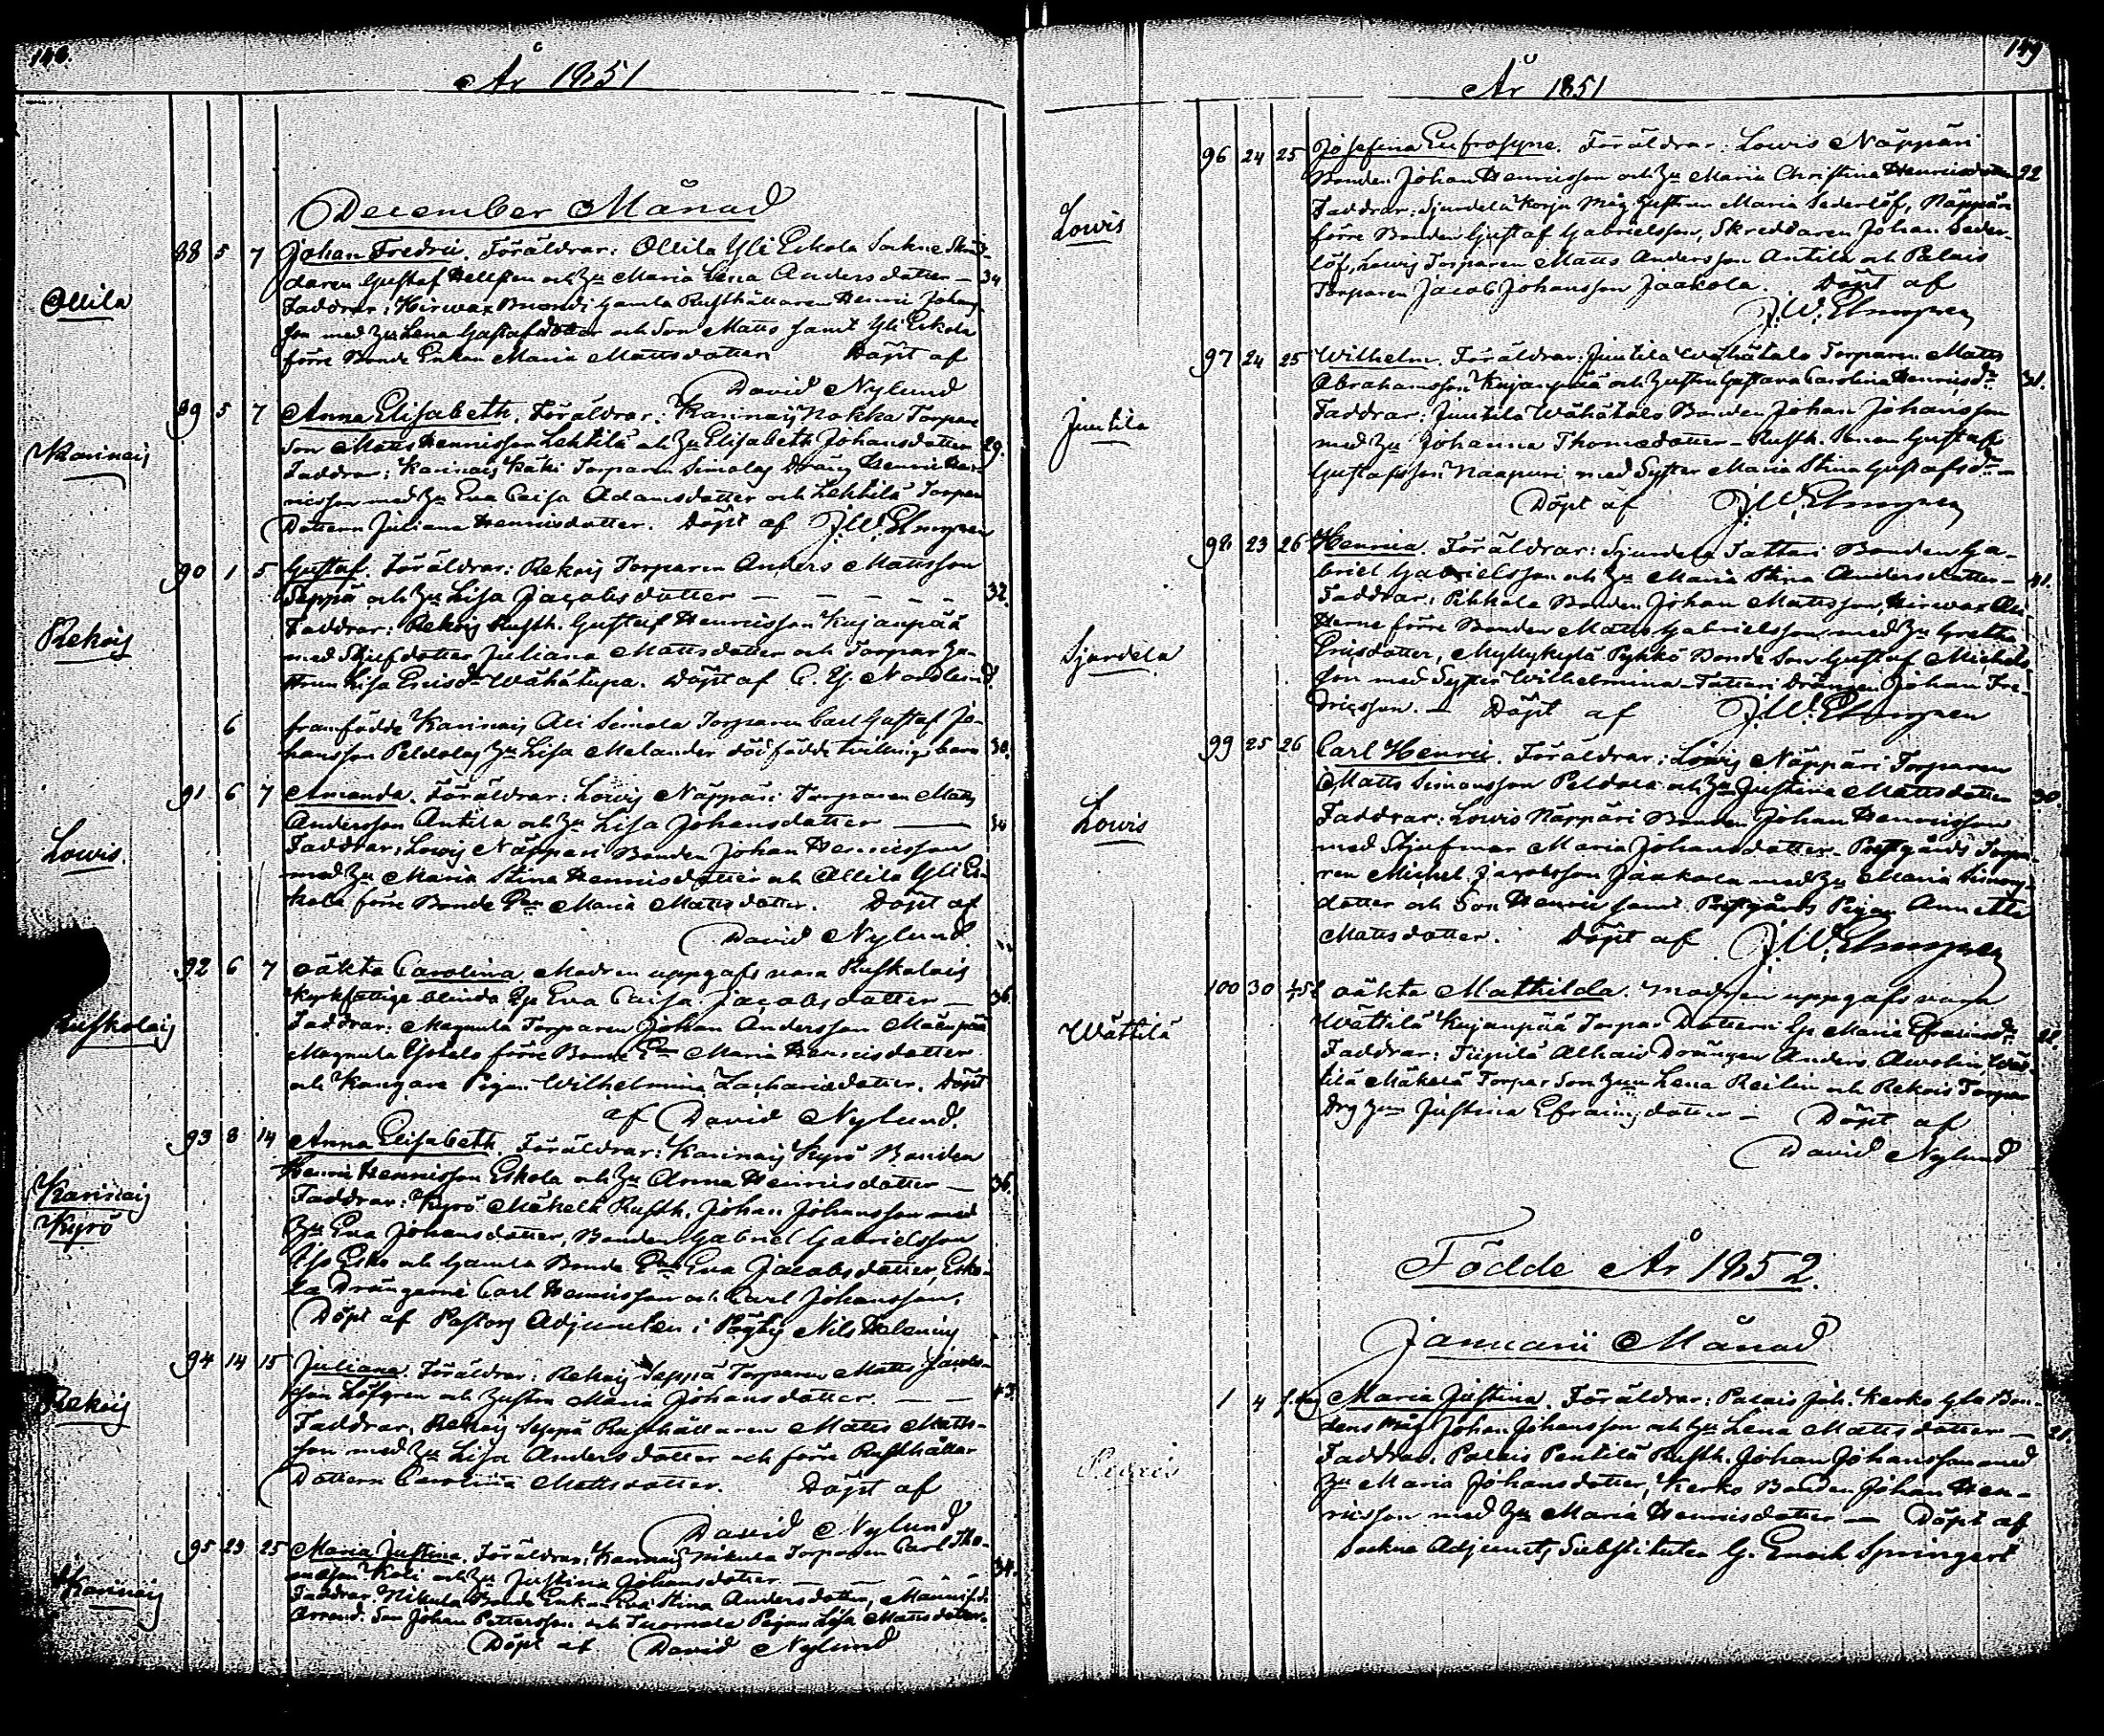 148.
År 1851
December Månad
Ollila
88 5 7 Johan Fredric. Föräldrar: Ollila Yli Eskola Sockne Skräd-
daren Gustaf Hellsten och Hu Maria Lena Andersdotter — 34
Faddrar: Hirwax Buondi Gamla Rusthållaren Henric Johans-
son med Hu Lena Gustafsdotter och Son Matts samt Yli Eskola
förre Bonde Enkan Maria Mattsdotter Döpt af
David Nylund
Karinais
89 5 7 Anna Elisabeth. Föräldrar: Karinais Nokka Torpare
Son Matts Henricsson Lehtilä och Hu Elisabeth Johansdotter 29.
Faddrar: Karinais Käki Torparen Simolas Dräng Henric Hen-
ricsson med Hu Eva Caisa Adamsdotter och Lehtilä Torpar
Dottern Juliana Henricsdotter. Döpt af J.W. Elmgren
Rekois
90 1 5 Gustaf. Föräldrar: Rekois Torparen Anders Mattsson
Seppä och Hu Lisa Jacobsdotter — — — — 32.
Faddrar: Rekois Rusth. Gustaf Henricsson Kujanpää
med Stjufdotter Juliana Mattsdotter och Torpar Hu-
strun Lisa Ericsdr Wähätupa. Döpt af C. Ej. Nordlund.
6 framfödde Karinais Ali Simola Torparen Carl Gustaf Jo-
hansson Peldolas Hu Lisa Melander dödfödde tvillingebarn 30.
Lowis
91 6 7 Amanda. Föräldrar: Lowis Näppäri Torparen Matts
Andersson Antila och Hu Lisa Johansdotter — 34
Faddrar: Lowis Näppäri Bonden Johan Henricsson
med Hu Maria Stina Henricsdotter och Ollila Yli Es-
kola förre Bonde Maria Mattsdotter. Döpt af
David Nylund
Ruskolais
92 6 7 oäkta Carolina Modren uppgafs vara Ruskolais
Kyrkfattige blinda Eva Caisa Jacobsdotter — 36.
Faddrar: Magnula Torparen Johan Andersson Mäenpää
Magnula förre Bonde Maria Henricsdotter
och Kangare Pigan Wilhelmina Zachariædotter. Döpt
af David Nylund.
Karinais
Kyrö
93 8 14 Anna Elisabeth. Föräldrar: Karinais Kyrö Bonden
Henric Henricsson Eskola och Hu Anna Henricsdotter — 36.
Faddrar: Kyrö Mäkelä Rusth. Johan Johansson med
Hu Eva Johansdotter, Bonden Gabriel Gabrielsson
Iso Esko och Gamla Bonde Eva Jacobsdotter, Esko-
la Drängarne Carl Henricsson och Carl Johansson.
Döpt af Pastors Adjuncten i Pöytis Nils Helenius
Rekois
94 14 15 Juliana. Föräldrar: Rekois Seppä Torparen Matts Jacobs-
son Löfgren och Hustru Maria Johansdotter. — — 43.
Faddrar. Rekois Seppä Rusthållaren Matts Matts-
son med Hu Lisa Andersdotter och förre Rusthållar
Dottern Carolina Mattsdotter. Döpt af
David Nylund
Karinais
95 23 25 Maria Justina. Föräldrar: Karinais Nikula Torparen Carl Tho-
masson Kari och Hu Justina Johansdotter — — — 34.
Faddrar. Nikula Bonde Enkan Eva Stina Andersdotter,
Arrend. Son Johan Pettersson och Tuomola Pigan Lisa Mattsdotter.
Döpt af David Nylund
149
År 1851
Lowis
96 24 25 Josefina Eufrosyne. Föräldrar: Lowis Näppäri
Bonden Johan Henricsson och Hu Maria Christina Henricsdotter 22
Faddrar: Sjundela Korju Måg Hustrun Maria Sederlöf, Näppäri
förre Bonden Gustaf Gabrielsson, Skreddaren Johan Seder-
löf, Lowis Torparen Matts Andersson Antila och Palais
Torparen Jacob Johansson Jaakola. Döpt af
J.W. Elmgren
Juntila
97 24 25 Wilhelm. Föräldrar: Juntila Wähätalo Torparen Matts
Abrahamsson Kujanpää och Hustru Gustava Carolina Henricsdr 31.
Faddrar: Juntila Wähätalo Bonden Johan Johansson
med Hu Johanna Thomædotter — Rusth. Sonen Gustaf
Gustafsson Naapuri med Syster Maria Stina Gustafsdr —
Döpt af J.W. Elmgren
Sjundela
98 23 26 Henrica. Föräldrar: Sjundela Tattari Bonden Ga-
briel Gabrielsson och Hu Maria Stina Andersdotter — 41.
Faddrar: Pihkola Bonden Johan Mattsson, Hirwax Ali
Herne förre Bonden Matts Gabrielsson med Hu Gretha
Ericsdotter, Myllykylä Pykkö Bonde Son Gustaf Michels-
son med Syster Wilhelmina — Tattari Drängen Johan Fre-
dricsson. — Döpt af J.W. Elmgren
Lowis
99 25 26 Carl Henric. Föräldrar: Lowis Näppäri Torparen
Matts Simonsson Peldola och Hu Justina Mattsdotter 30.
Faddrar: Lowis Näppäri Bonden Johan Henricsson
med Stjufmor Maria Johansdotter — Prestgårds Torpa-
ren Michel Jacobsson Jaakola med Hu Maria Simons-
dotter och Son Henric samt Prestgårds Pigan Annetta
Mattsdotter. Döpt af J.W. Elmgren
Wättilä
100 30 oäkta Mathilda. Modren uppgafs vara
Wättilä Kujanpää Torpar Dottern Maria Efraimsdr 22.
Faddrar: Tiipilä Alhais Drängen Anders Awolin, Wät-
tilä Mäkelä Torpar Son Hun Lena Reilin och Rekois Torpar
Drg Hun Justina Efraimsdotter — Döpt af
David Nylund
Födde År 1852.
Januarii Månad
1 4 Maria Justina. Föräldrar: Palais Joh. Kerko Gla Bon-
dens Måg Johan Johansson och Hu Lena Mattsdotter — 21.
Faddrar. Palais Pentilä Rusth. Johan Johansson med
Hu Maria Johansdotter, Kerko Bonden Johan Hen-
ricsson med Hu Maria Henricsdotter — Döpt af
Sockne Adjuncts Substituten G. Enoch Springert